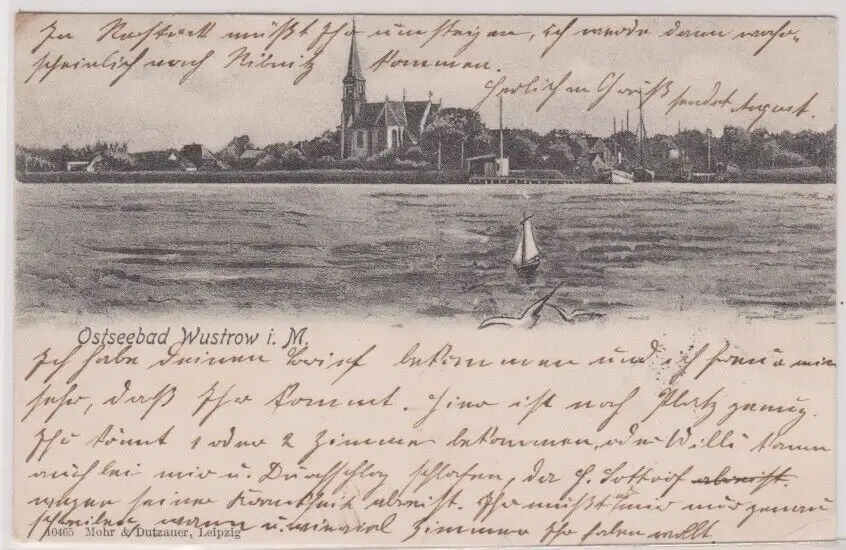 In Rostock müßt Ihr umsteigen, ich werde dann wahr-
scheinlich nach Ribnitz kommen.
Herzlichen Gruß sendet August.
Ostseebad Wustrow i. M.
Ich habe Deinen Brief bekommen und ich freue mich
sehr, daß Ihr kommt. Hier ist noch Platz genug.
Ihr könnt 1 oder 2 Zimmer bekommen, oder Willi kann
auch bei mir u. schlafen, da H. abreist
wegen seiner Krankheit abreist. Ihr müßt mir nur genau
schreiben, wann u. wieviel Zimmer Ihr haben wollt.
10465 Mohr & Dutzauer, Leipzig